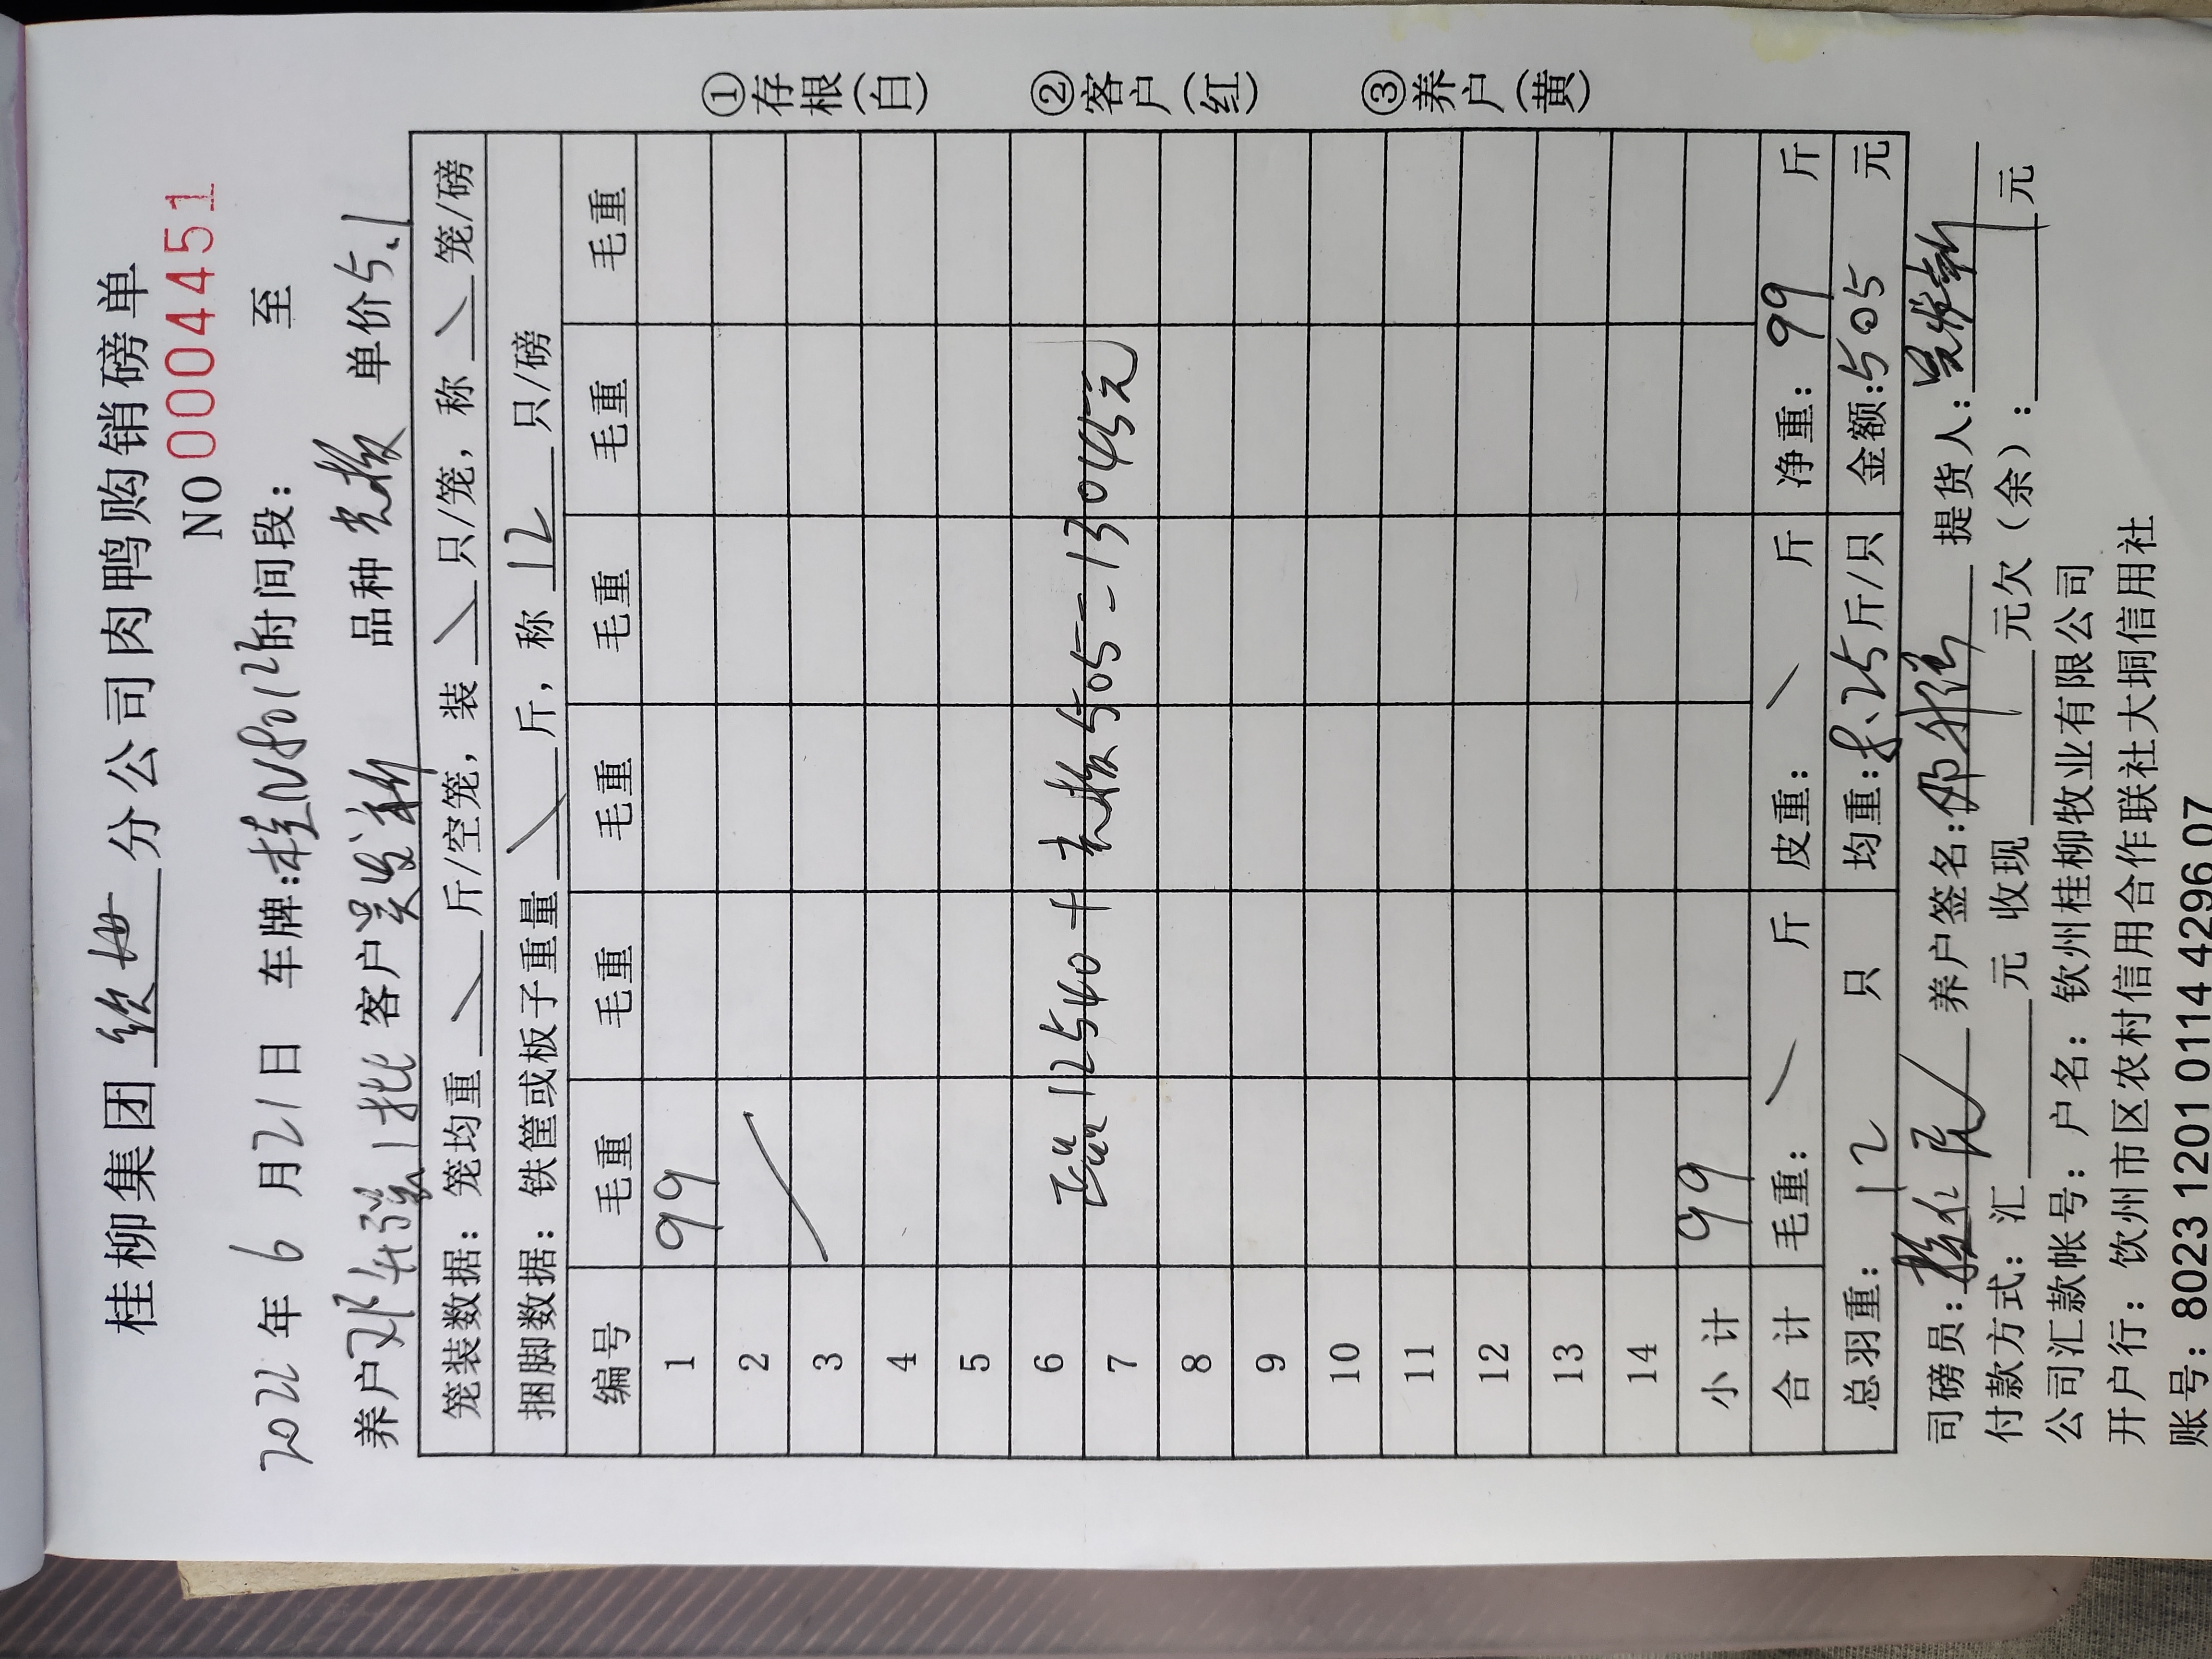 桂柳集团 钦州 分公司肉鸭购销磅单
NO 0004451
2022年 6 月21日 车牌:桂N8012 时间段: 至
养户 邓 强1批 客户 吴发新 品种 光板 单价5.1
笼装数据:笼均重 \ 斤/空笼,装 \ 只/笼,称 \ 笼/磅
捆脚数据:铁筐或板子重量 \ 斤,称 12 只/磅
编号 毛重 毛重 毛重 毛重 毛重 毛重
1 99
2
3
4
5
6
7
正品12540+光板505=13045元
8
9
10
11
12
13
14
小计 99
合计 毛重: / 斤 皮重: \ 斤 净重: 99 斤
总羽重: 12 只 均重:8.25斤/只 金额:505 元
司磅员: 养户签名: 提货人:
付款方式:汇 元 收现 元欠(余): 元
公司汇款帐号:户名:钦州桂柳牧业有限公司
开户行:饮州市区农村信用合作联社大垌信用社
账号:8023 1201 0114 4296 07
①存根(白)
②客户(红)
③养户(黄)